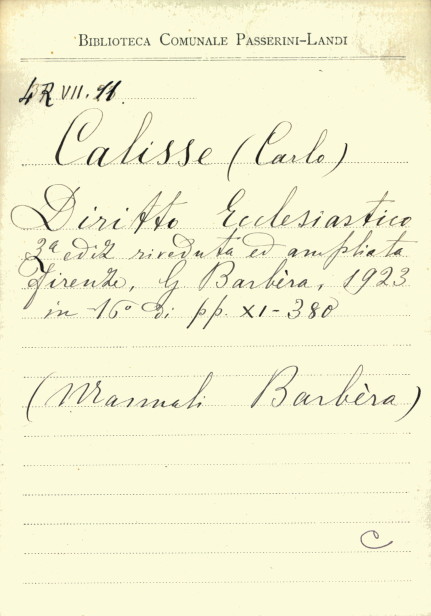 BIBLIOTECA COMUNALE PASSERINI-LANDI
4R VII. 11.
Calisse (Carlo)
Diritto Ecclesiastico
3ª ediz riveduta ed ampliata
Firenze, G Barbèra, 1923
in 16º di pp. XI-380
(Manuali Barbèra)
C